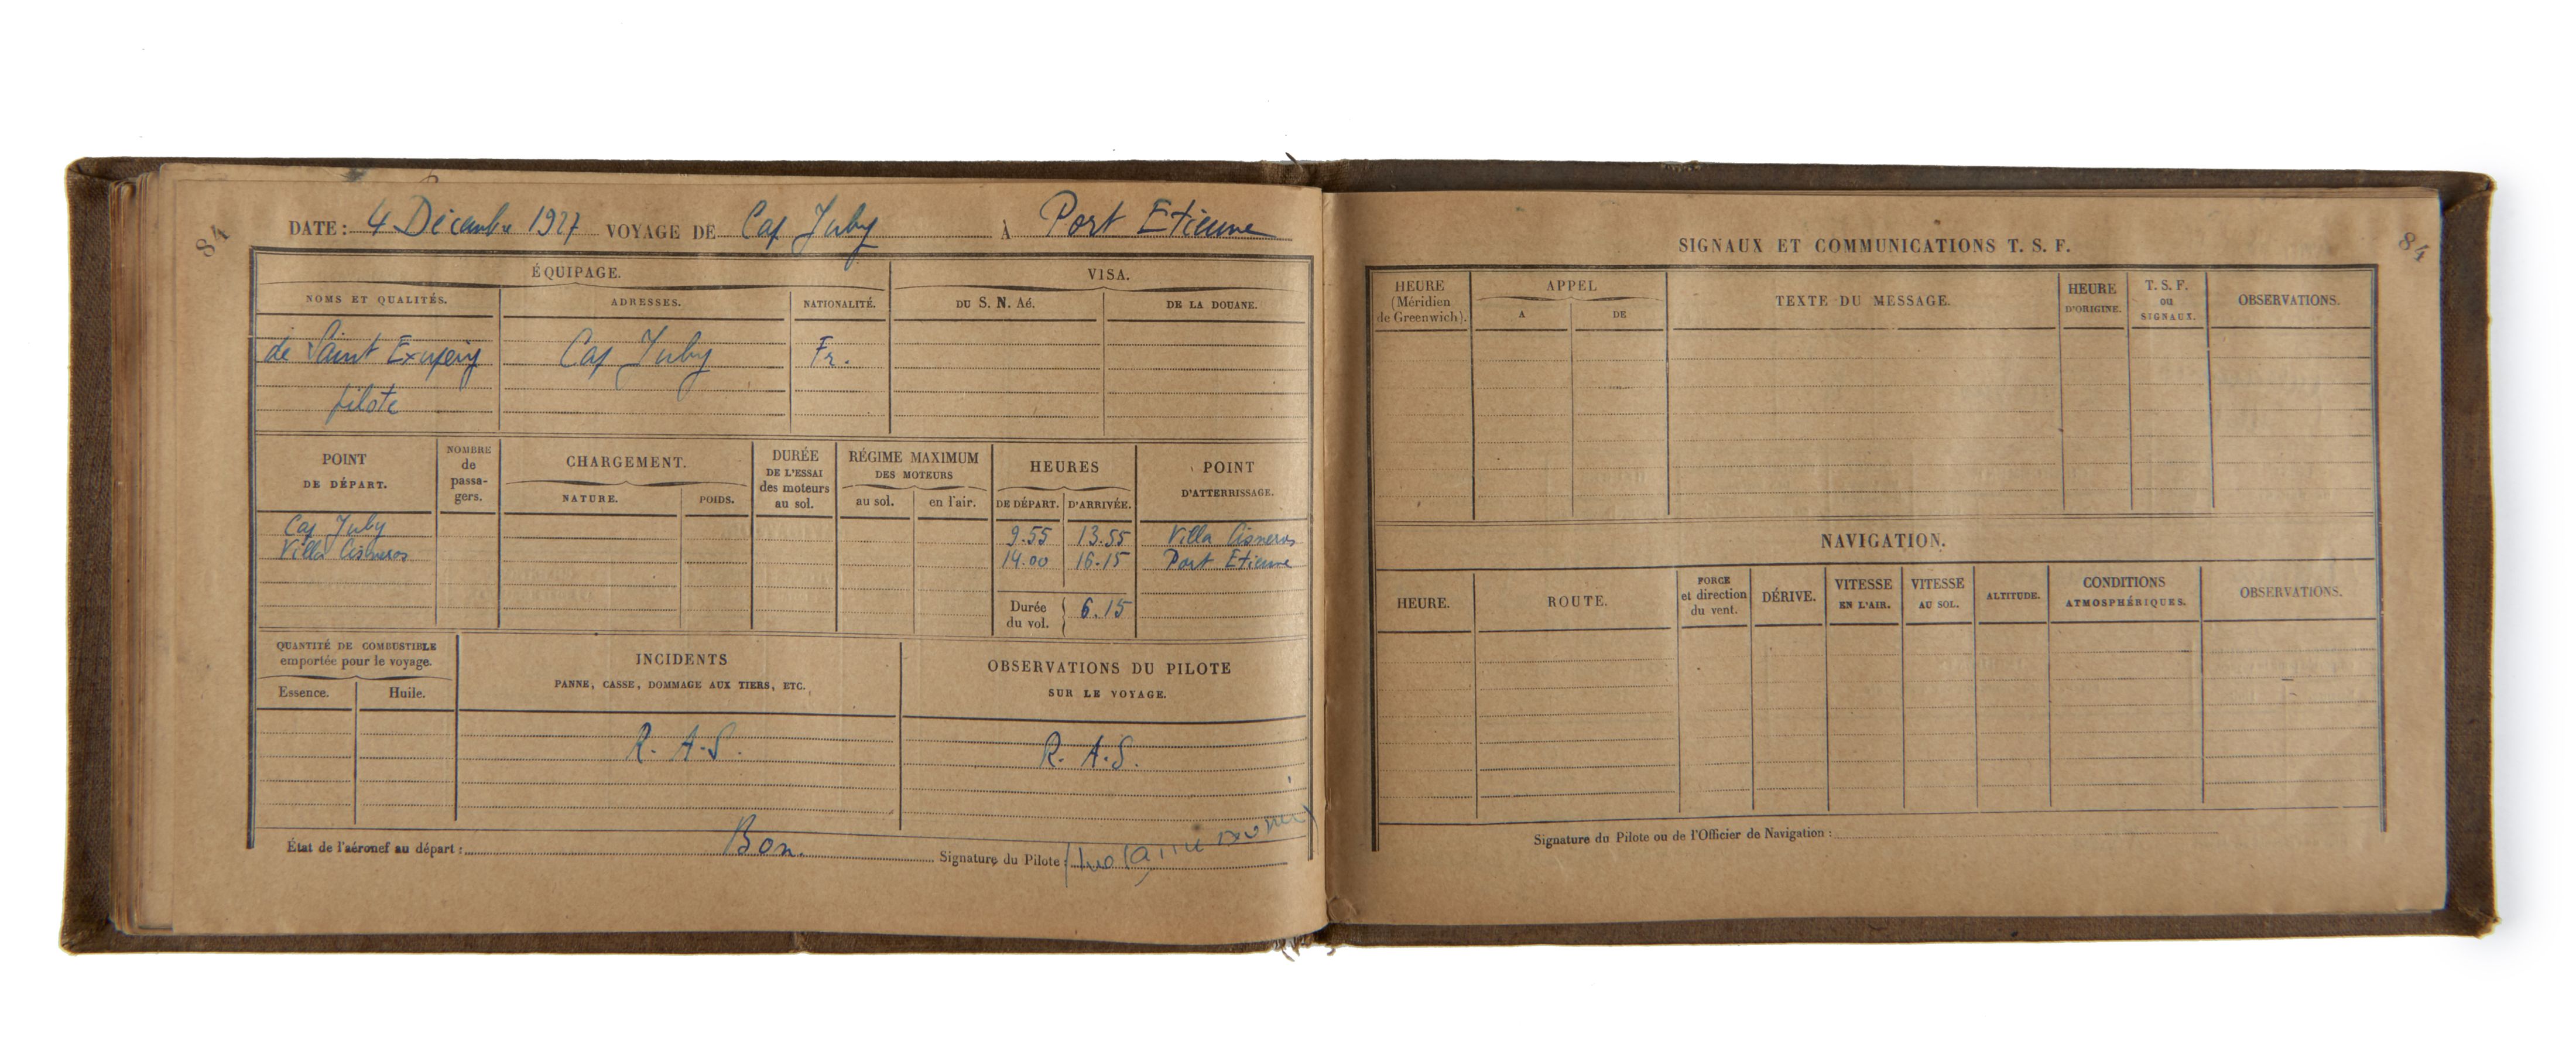 84
DATE : 4 Décembre 1927 VOYAGE DE Cap Juby À Port Etienne
ÉQUIPAGE. VISA.
NOMS ET QUALITÉS. ADRESSES. NATIONALITÉ. DU S. N. Aé. DE LA DOUANE.
de Saint Exupéry Cap Juby Fr.
pilote
POINT DE DÉPART. NOMBRE de passa- gers. CHARGEMENT. DURÉE DE L'ESSAI des moteurs au sol. RÉGIME MAXIMUM DES MOTEURS HEURES POINT D'ATTERRISSAGE.
NATURE. POIDS. au sol. en l'air. DE DÉPART. D'ARRIVÉE.
Cap Juby 9.55 13.55 Villa Cisneros
Villa Cisneros 14.00 16.15 Port Etienne
Durée du vol. 6.15
QUANTITÉ DE COMBUSTIBLE
emportée pour le voyage.
Essence. Huile.
INCIDENTS
PANNE, CASSE, DOMMAGE AUX TIERS, ETC.
OBSERVATIONS DU PILOTE
SUR LE VOYAGE.
R. A. S. R. A. S.
État de l'aéronef au départ : Bon. Signature du Pilote :
84
SIGNAUX ET COMMUNICATIONS T. S. F.
HEURE (Méridien de Greenwich). APPEL TEXTE DU MESSAGE. HEURE D'ORIGINE. T. S. F. ou SIGNAUX. OBSERVATIONS.
A DE
NAVIGATION.
HEURE. ROUTE. FORCE et direction du vent. DÉRIVE. VITESSE EN L'AIR. VITESSE AU SOL. ALTITUDE. CONDITIONS ATMOSPHÉRIQUES. OBSERVATIONS.
Signature du Pilote ou de l'Officier de Navigation :